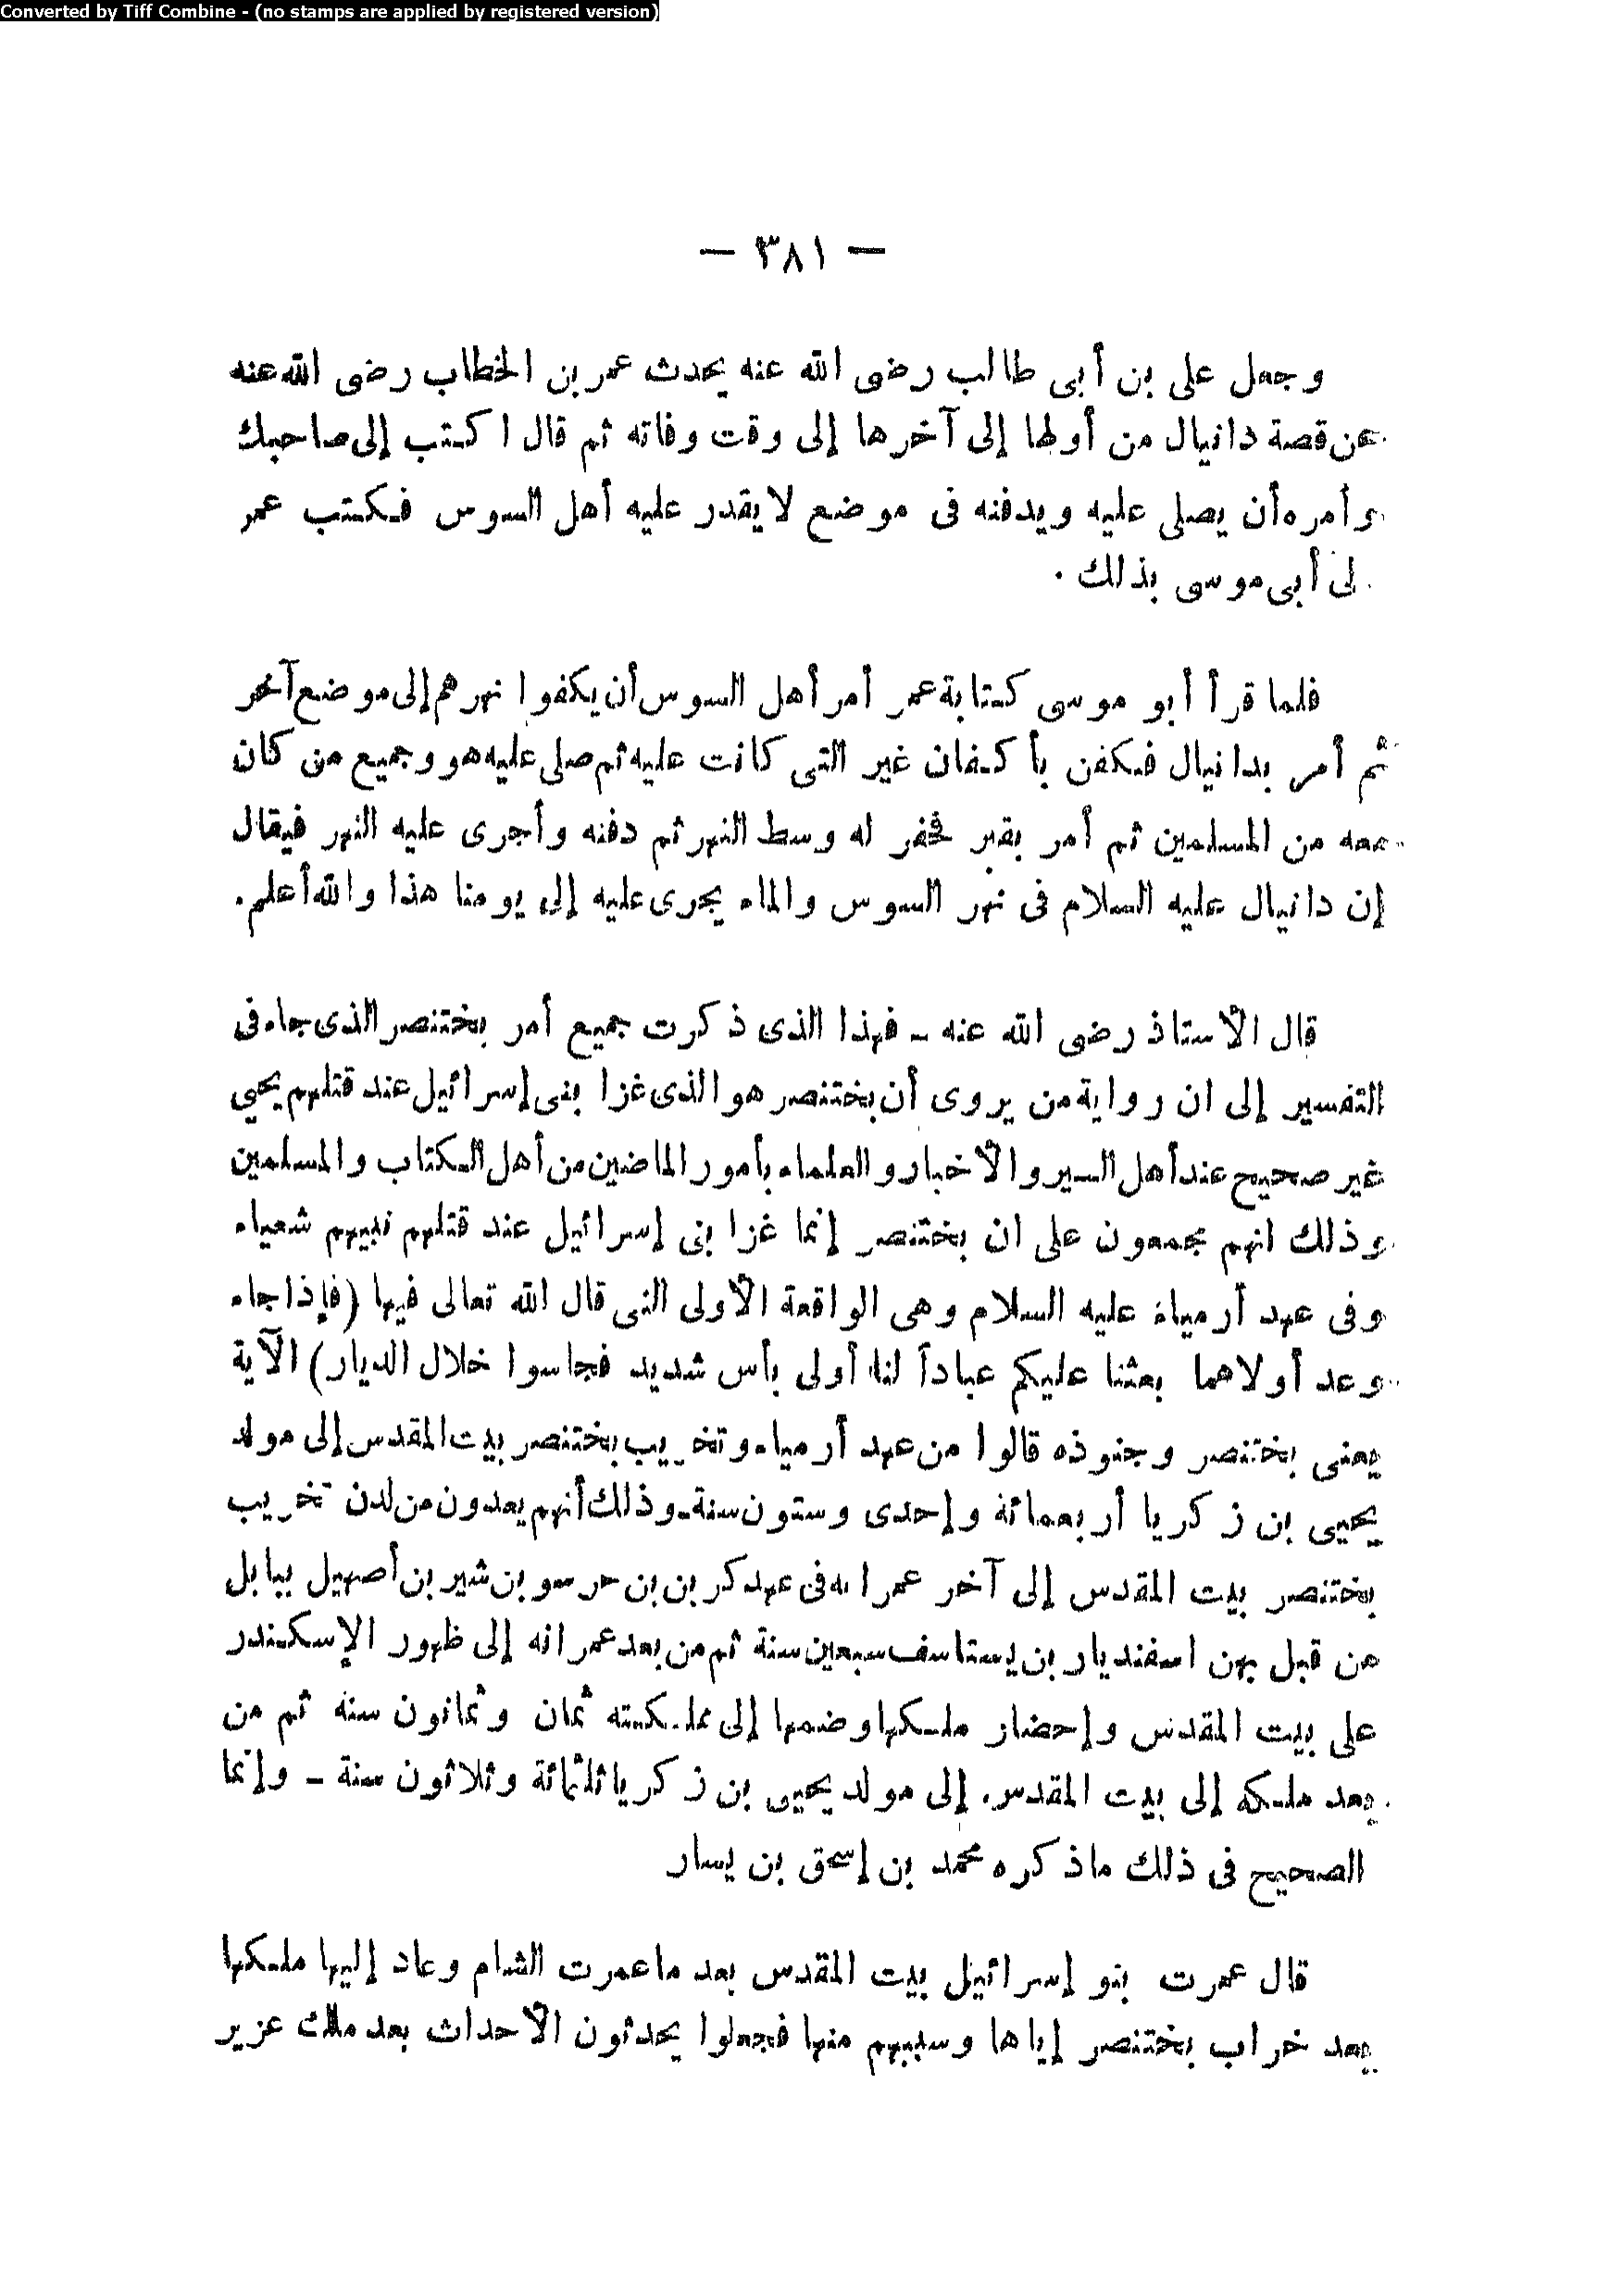 Converted by Tiff Combine - (no stamps are applied by registered version)
— ٣٨١ —
وجعل على بن أبى طالب رضى الله عنه يحدث عمر بن الخطاب رضى الله عنه
عن قصة دانيال من أولها إلى آخرها إلى وقت وفاته ثم قال اكتب إلى صاحبك
وأمره أن يصلى عليه ويدفنه فى موضع لا يقدر عليه أهل السوس فكتب عمر
لى أبى موسى بذلك .
فلما قرأ أبو موسى كتابة عمر أمر أهل السوس أن يكفوا نهرهم إلى موضع آخر
ثم أمر بدانيال فكفن بأكفان غير التى كانت عليه ثم صلى عليه هو وجميع من كان
معه من المسلمين ثم أمر بقبر فحفر له وسط النهر ثم دفنه وأجرى عليه النهر فيقال
إن دانيال عليه السلام فى نهر السوس والماء يجرى عليه إلى يومنا هذا والله أعلم.
قال الأستاذ رضى الله عنه - فهذا الذى ذكرت جميع أمر بختنصر الذى جاء فى
التفسير إلى ان رواية من يروى أن بختنصر هو الذى غزا بنى إسرائيل عند قتلهم يحيى
غير صحيح عند أهل السير والأخبار والعلماء بأمور الماضين من أهل الكتاب والمسلمين
وذلك انهم مجمعون على ان بختنصر إنما غزا بنى إسرائيل عند قتلهم نبيهم شعياء
وفى عهد أرمياء عليه السلام وهى الواقعة الأولى التى قال الله تعالى فيها (فإذا جاء
وعد أولاهما بعثنا عليكم عباداً لنا أولى بأس شديد فجاسوا خلال الديار) الآية
يعنى بختنصر وجنوده قالوا من عهد أرمياء وتخريب بختنصر بيت المقدس إلى مولد
يحيى بن زكريا أربعمائة وإحدى وستون سنة - وذلك أنهم يعدون من لدن تخريب
بختنصر بيت المقدس إلى آخر فى عهد بن بن أصهيل ببابل
من قبل بهن اسفنديار بن يستاسف سبعين سنة ثم من بعد عمرانه إلى ظهور الإسكندر
على بيت المقدس وإحضار ملكها وضمها إلى مملكته ثمان وثمانون سنة ثم من
بعد ملكه إلى بيت المقدس. إلى مولد يحيى بن زكريا ثلثمائة وثلاثون سنة - وإنما
الصحيح فى ذلك ماذكره محمد بن إسحق بن يسار
قال عمرت بنو إسرائيل بيت المقدس بعد ماعمرت الشام وعاد إليها ملكها
بعد خراب بختنصر إياها وسبيهم منها فجعلوا يحدثون الأحداث بعد عزير